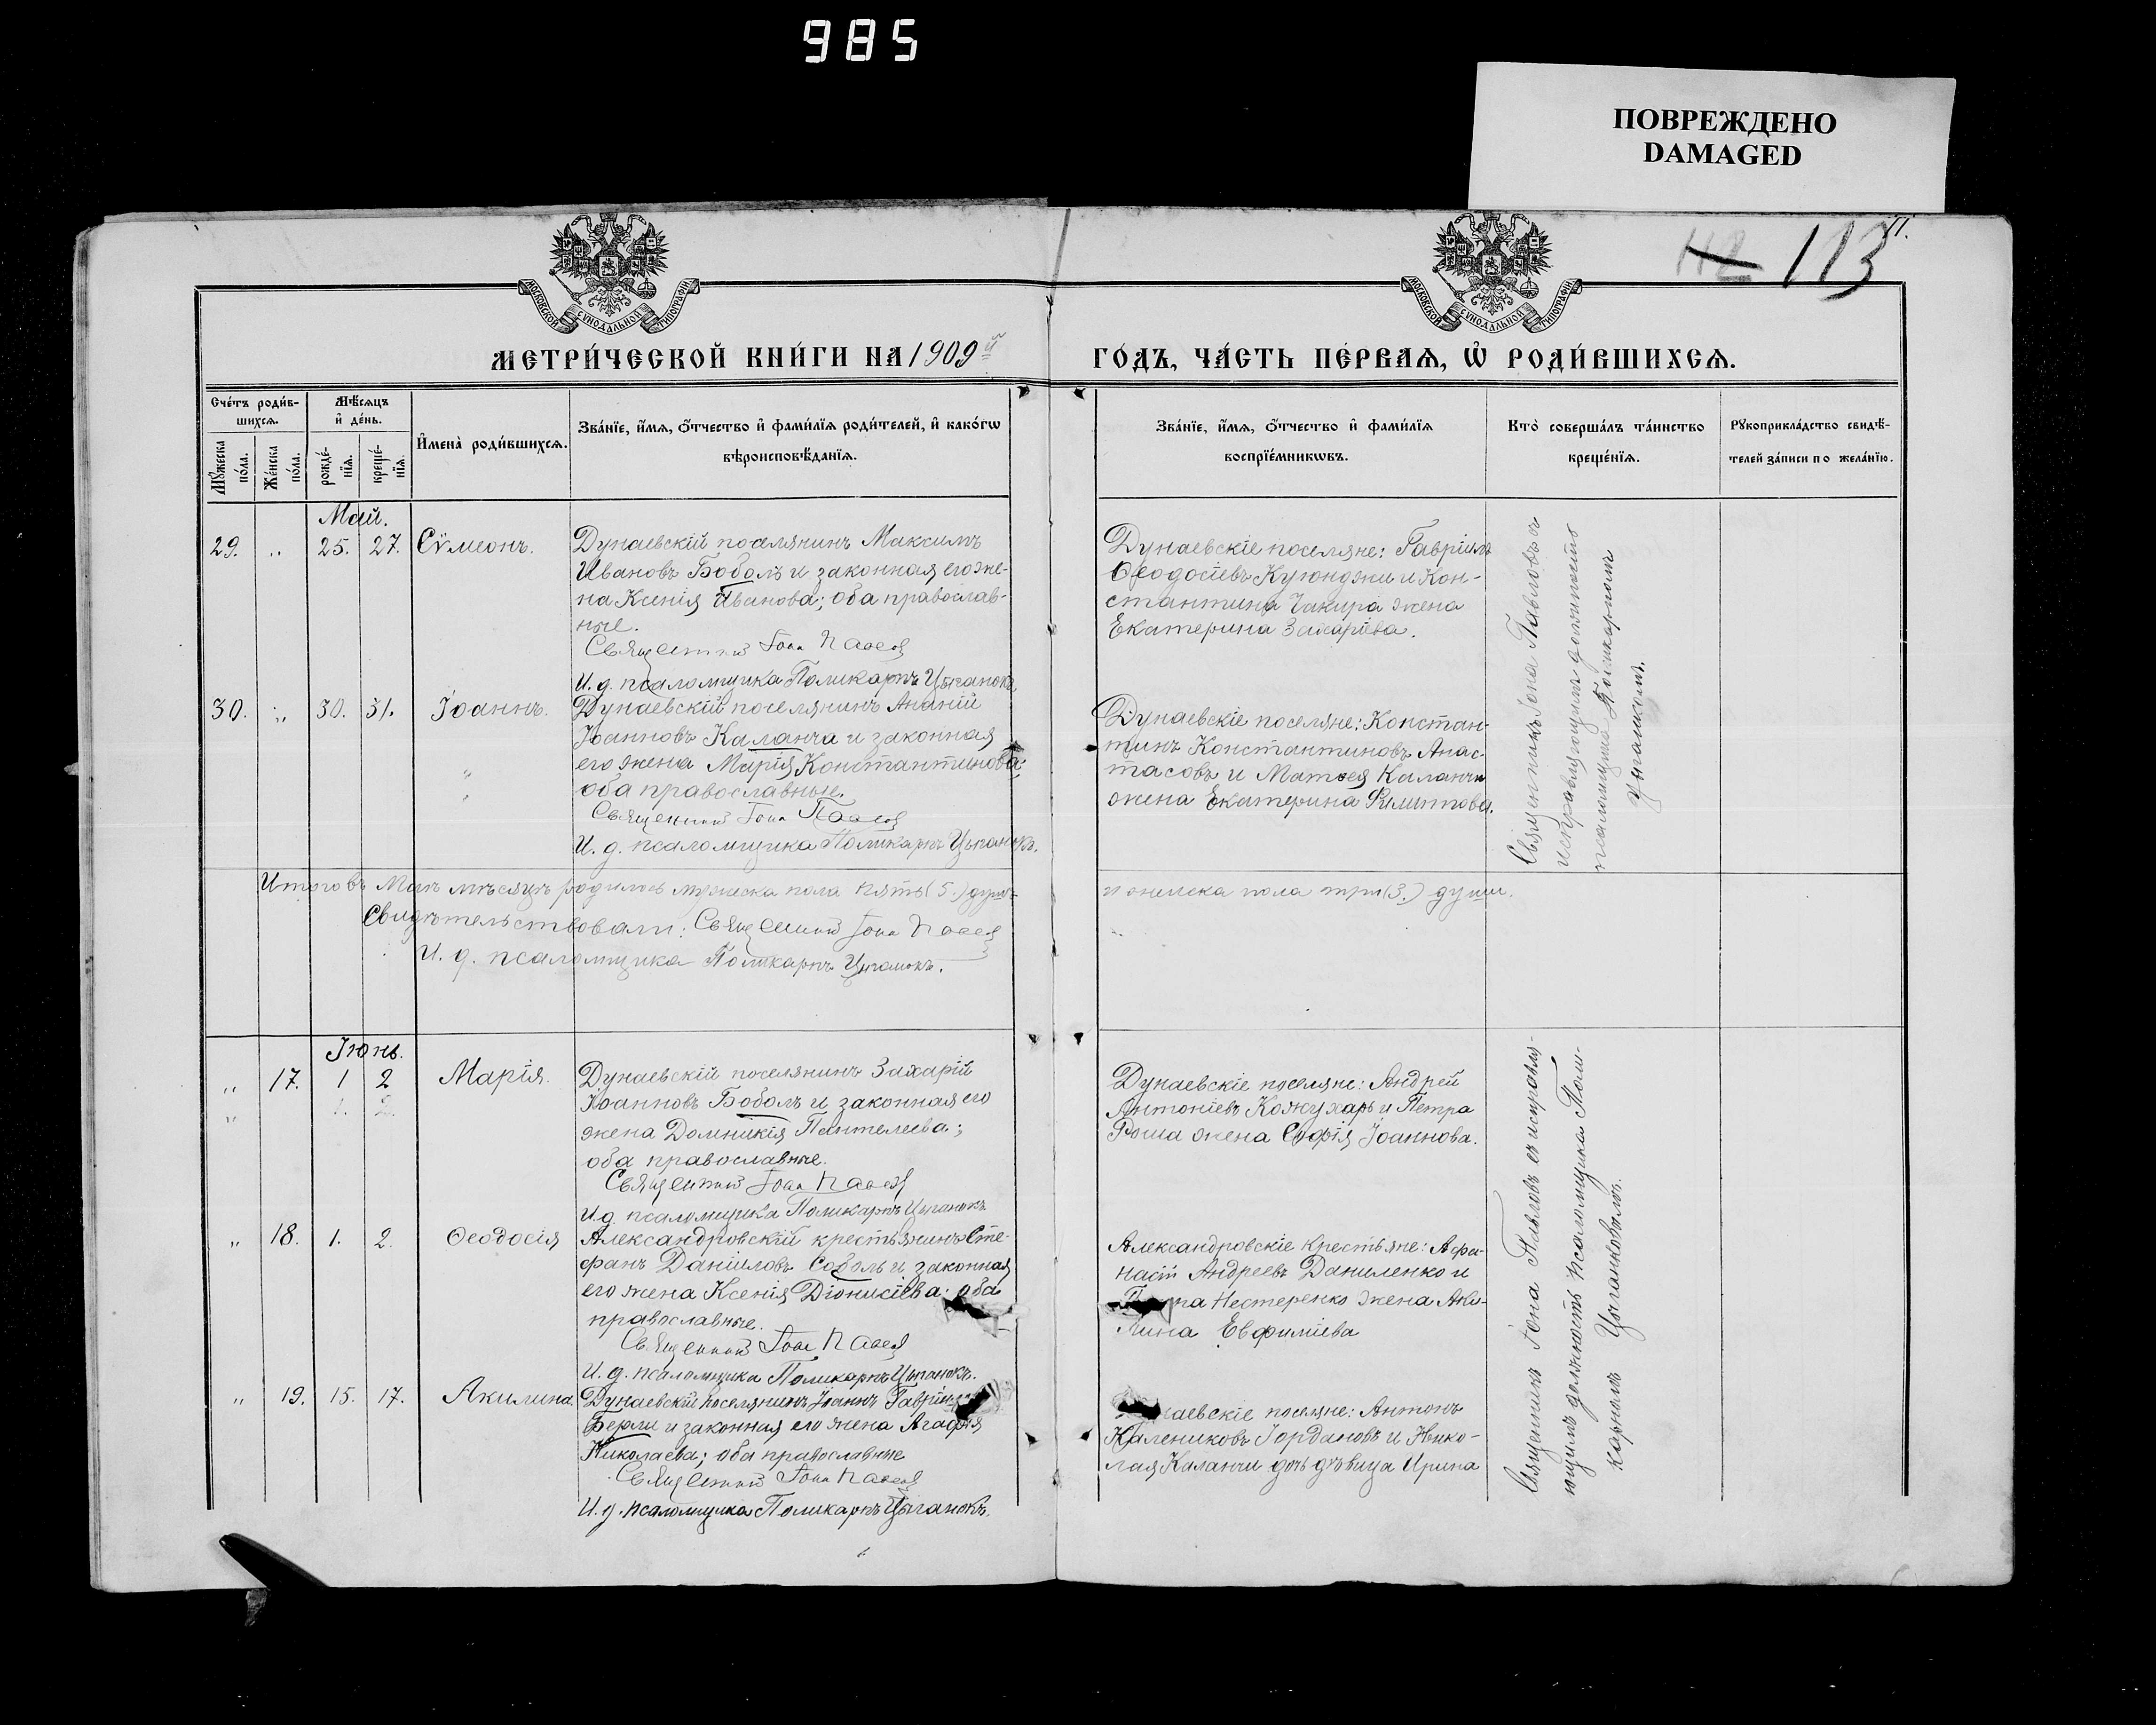 985
ПОВРЕЖДЕНО
DAMAGED
11.
112 113
МОСКОВСКОЙ СѴНОДАЛЬНОЙ ТИПОГРАФІИ
МОСКОВСКОЙ СѴНОДАЛЬНОЙ ТИПОГРАФІИ
МЕТРИ́ЧЕСКОЙ КНИ́ГИ НА 1909й
ГО́ДЪ, ЧА́СТЬ ПЕ́РВАЯ, Ѡ РОДИ́ВШИХСЯ.
Сче́тъ роди́в-
шихся.
Мѣ́сяцъ
и҆ де́нь.
Мꙋ́жеска
по́ла.
Же́нска
по́ла.
рожде́-
нїя.
креще́-
нїя.
И҆мена̀ роди́вшихся.
Зва́нїе, и҆́мя, ѻ҆́тчество и҆ фами́лїя роди́телей, и҆ како́гѡ
вѣроисповѣ́данїя.
Зва́нїе, и҆́мя, ѻ҆́тчество и҆ фами́лїя
воспрїе́мникѡвъ.
Кто̀ соверша́лъ та́инство
креще́нїя.
Рꙋкоприкла́дство свидѣ́-
телей за́писи по жела́нїю.
Май.
29. „ 25. 27. Сѵмеонъ.
Дунаевскій поселянинъ Максимъ
Ивановъ Боболъ и законная его же-
на Ксенія Иванова; оба православ-
ные.
Священникъ Іона Павлов
И. д. псаломщика Поликарпъ Цыганокъ
Дунаевскіе поселяне: Гавріилъ
Ѳеодосіевъ Куюнджи и Кон-
стантина Чакира жена
Екатерина Захаріева.
Священникъ Іона Павловъ съ
исправляющимъ должность
псаломщика Поликарпомъ
Цыганкомъ.
30. „ 30. 31. Іоаннъ.
Дунаевскій поселянинъ Ананій
Іоанновъ Каланча и законная
его жена Марія Константинова;
оба православные.
Священникъ Іона Павлов
И. д. псаломщика Поликарпъ Цыганокъ.
Дунаевскіе поселяне: Констан-
тинъ Константиновъ Анас-
тасовъ и Матѳея Каланчи
жена Екатерина Филиппова.
Итого въ Маѣ мѣсяцѣ родилось мужеска пола пять (5.) душъ
и женска пола три (3.) души.
Свидѣтельствовали: Священникъ Іона Павлов
И. д. псаломщика Поликарпъ Цыганокъ.
Іюнь.
„ 17. 1 2 Марія.
„ 1. 2.
Дунаевскій поселянинъ Захарій
Іоанновъ Боболъ и законная его
жена Домникія Пантелеева;
оба православные.
Священникъ Іона Павлов
И. д. псаломщика Поликарпъ Цыганокъ
Дунаевскіе поселяне: Андрей
Антоніевъ Кожухарь и Петра
Роша жена Софія Іоаннова.
Священникъ Іона Павловъ съ исправля-
ющимъ должность псаломщика Поли-
карпомъ Цыганковымъ.
„ 18. 1. 2. Ѳеодосія
Александровскій крестьянинъ Сте-
фанъ Даніиловъ Соболь и законная
его жена Ксенія Діонисіева; оба
православные.
Священникъ Іона Павлов
И. д. псаломщика Поликарпъ Цыганокъ.
Александровскіе крестьяне: Афа-
насій Андреевъ Даниленко и
Нестеренко жена Аки-
лина Евфиміева
„ 19. 15. 17. Акилина.
Дунаевскій поселянинъ Іоаннъ
Берли и законная его жена Агафія
Николаева; оба православные
Священникъ Іона Павлов
И. д. псаломщика Поликарпъ Цыганокъ.
наевскіе поселяне: Антонъ
Калениковъ Іордановъ и Нико-
лая Каланчи дочь дѣвица Ирина